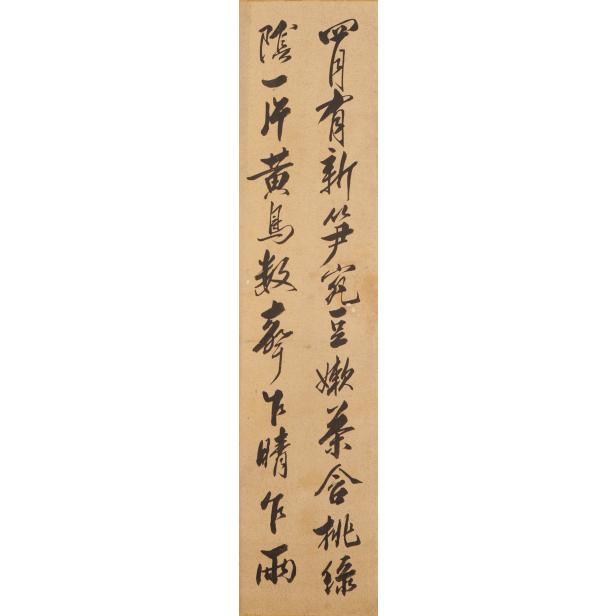 四月有新笋宛豆嫩茶含桃綠
陰一片黄鳥数聲乍晴乍雨